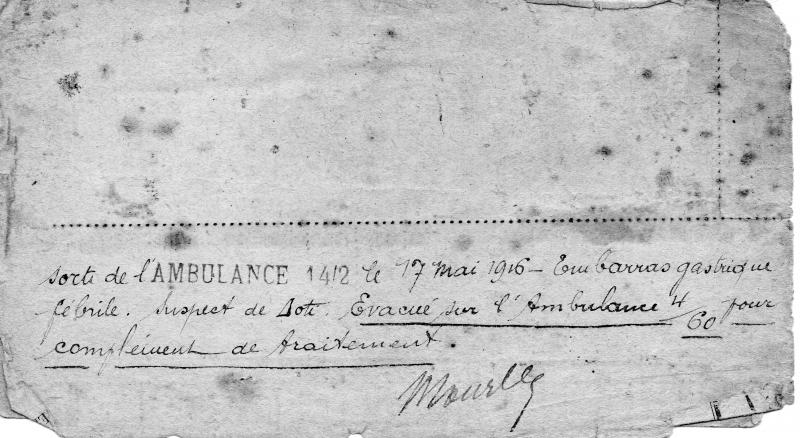 sorti de l'AMBULANCE 14/2 le 17 Mai 1916 - Embarras gastrique
fébrile. Suspect de Doti. Evacué sur l'Ambulance 4/60 pour
complément de traitement.